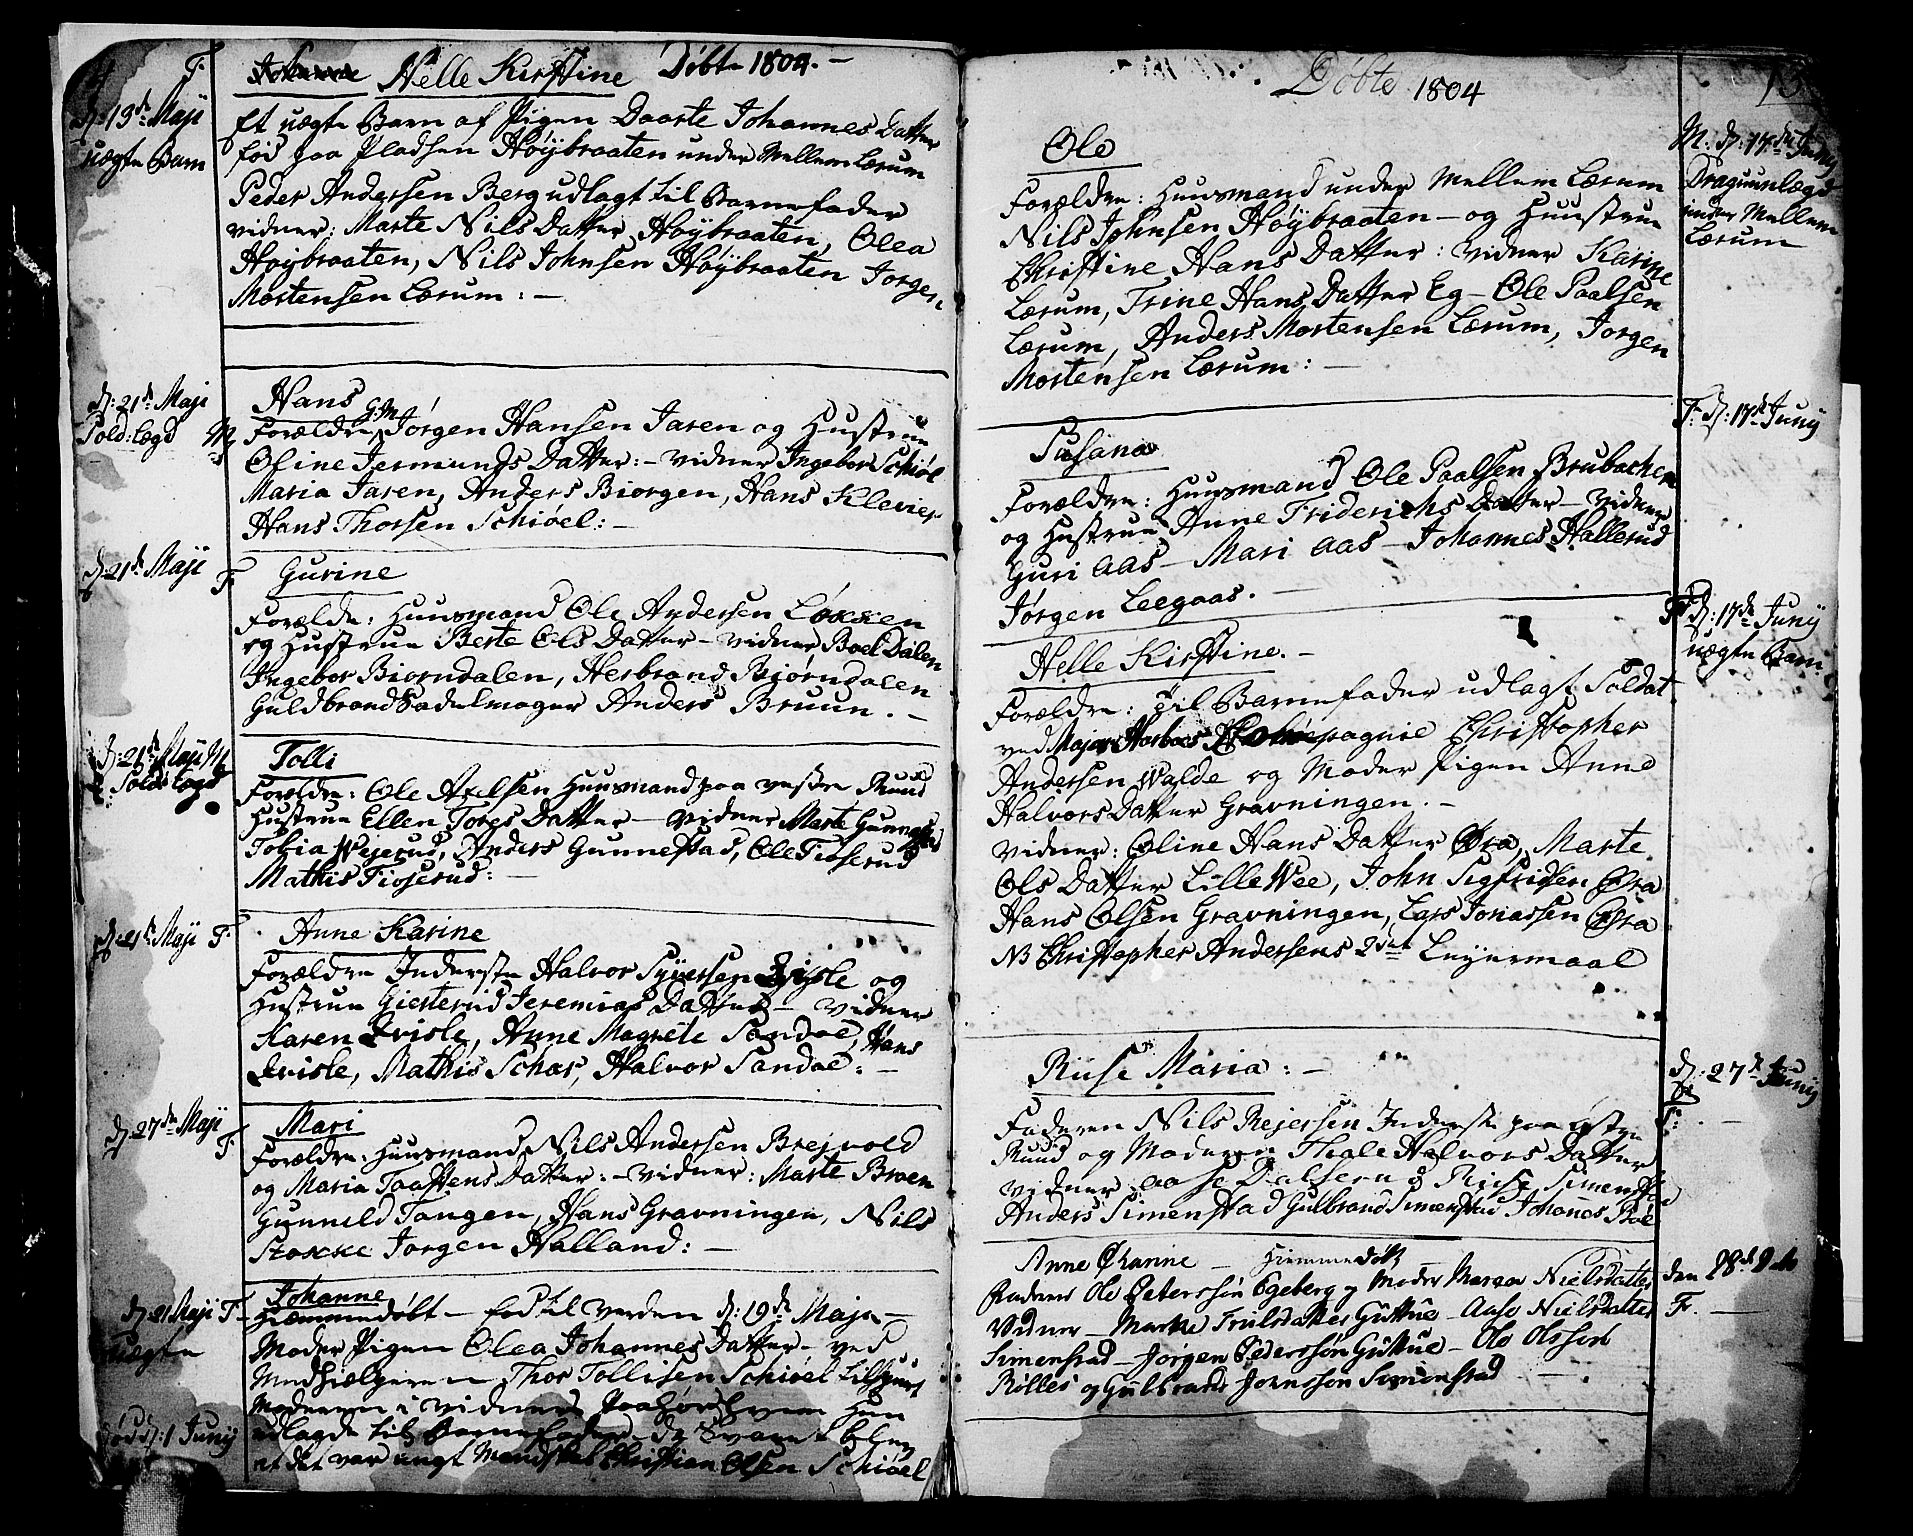 Døbte 1804. –
F.
Helle Kirstine
d: 13de Maji
uægte Barn
Et uægte Barn af Pigen Daarte Johannes Datter
fød paa Pladsen Høÿbraaten under Mellem Lærum
Peder Andersen Berg udlagt til Barnefader
vidner: Marte Nils Datter Høÿbraaten, Olea
Høÿbraaten, Nils Johnsen Høÿbraaten Jorgen
Mortensen Lærum: –
d: 21de Maji
Sold: Lægd M
Hans
Forældre G:M: Jørgen Hansen Jaren og Hustrue
Oline Jermunds Datter: – vidner Ingebor Schiøl
Maria Jaren, Anders Biørgen, Hans Klevier
Hans Thorsen Schiøel: –
d: 21de Maji F.
Gurine
Forældr: Huusmand Ole Andersen Løkken
og Hustrue Berte Ols Datter – vidner Boel Dalen
Ingebor Biorndalen, Herbrand Bjørndalen
Guldbrand Sadelmager Anders Bruun. –
d: 21de Maji M
Sold: Lægd
Tolli
Forældre: Ole Axelsen Huusmand paa vestre Ruud
Hustrue Ellen Torgs Datter – vidner Marte Gunnestad
Tobia Wejerud, Anders Gunnestad, Ole Tioserud
Mathis Tioserud: –
d: 21de Maji F.
Anne Karine
Forældre Inderste Halvor Syversen Qvisle og
Hustrue Giesterud Jeremias Datter – vidner
Karen Qvisle, Anne Magrete Sandoe, Hans
Qvisle, Mathis Schar, Halvor Sandoe: –
d: 27de Maji F.
Mari
Forældre: Huusmand Nils Andersen Brejvold
og Maria Taastens Datter: – vidner: Marte Broen
Gunnild Tangen, Hans Gravningen, Nils
Stokke Jorgen Halland: –
d: 21 Maji F.
uægte
Johanne
Hiemmedøbt – fød til verden d: 19de Maji –
Moder Pigen Olea Johannes Datter – ved
Medhiælperen Thor Tollisen Schiøel tilspurt
Moderen i vidners Paahør hvem hun
udlagde til Barnefader – de Svaret blev
at det var ungt Mandskab Christian Olsen Schiøel
død d: 1 Junij
Døbte 1804
M. d: 17de Junij
Dragounlægd
under Mellem
Lærum
Ole
Forældre: Huusmand under Mellem Lærum
Nils Johnsen Høÿbraaten – og Huustrue
Christine Hans Datter: vidner Karine
Lærum, Trine Hans Datter Eg – Ole Paalsen
Lærum, Anders Mortensen Lærum, Jorgen
Mortensen Lærum: –
F. d: 17de Junij
Susana
Forældre: Huusmand Ole Paalsen Brubachen
og Hustrue Anne Friderichs Datter – vidner
Guri Aas – Mari Aas – Johannes Hallerud
Jørgen Leegaas. –
F d: 17de Junij
uægte Barn
Helle Kirstine. –
Forældre: Til Barnefader udlagt Soldat
ved Major Compagnie Christopher
Andersen Walde og Moder Pigen Anne
Halvors Datter Gravningen. –
vidner: Oline Hans Datter Øra, Marte
Ols Datter Lille Wee, John Sigfridsen Øra
Hans Olsen Gravningen, Lars Jonassen Øra
NB Christopher Andersens 2det Leÿermaal
d: 27de Junij
F: –
Ruse Maria: –
Faderen Nils Rejersen Inderste paa østre
Ruud og Moderen Thale Halvors Datter
vidner Aase Dalseru Ruse Simenstad
Anders Simenstad Gulbrand Simenstad Johanes Boe
den 28de
F. –
Anne Karine – Hiemmedøbt
Faderen Ole Peterssøn Egeberg og Moder Maren Nielsdatter
Vidner – Marthe Truelsdatter Guttue – Aase Nielsdatter
Simenstad – Jørgen Pederssøn Guttue – Ole Olssøn
Rølles og Gulbrand Jornssøn Simenstad –